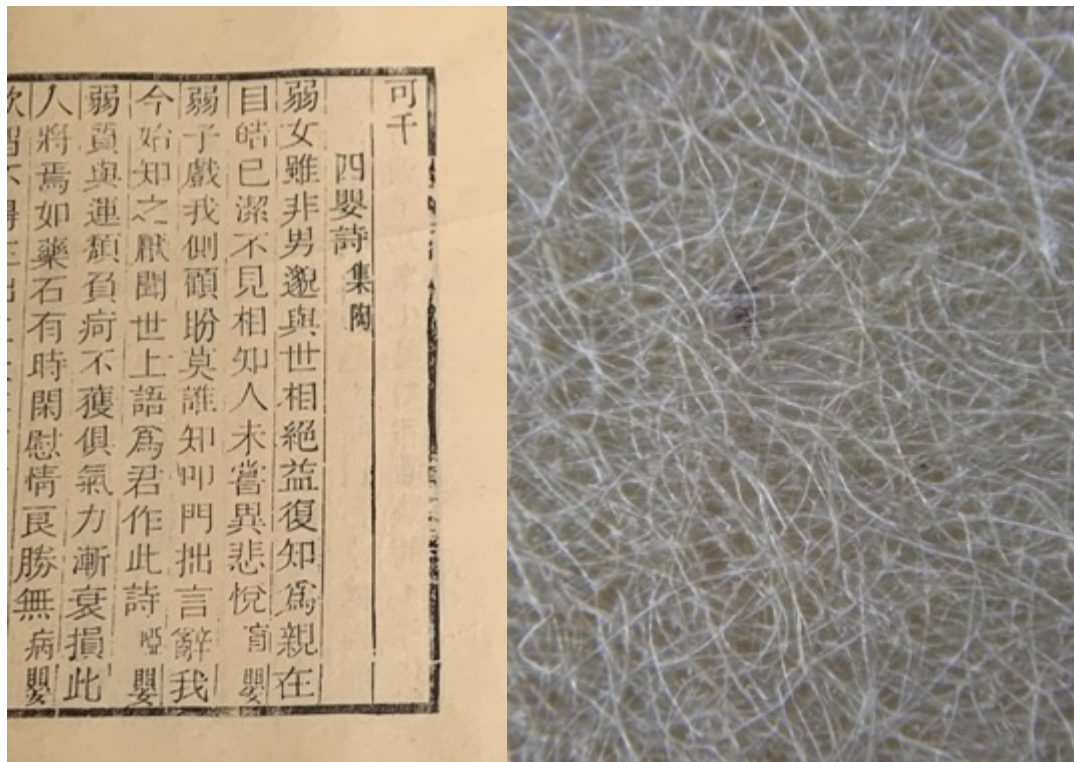 可千
四嬰詩 集陶
弱女雖非男邈與世相絕益復知爲親在
目皓已潔不見相知人未嘗異悲悅 盲嬰
弱子戲我側顧盼莫誰知叩門拙言辭我
今始知之厭聞世上語爲君作此詩 啞嬰
弱質與運頹負疴不獲俱氣力漸衰損此
人將焉如藥石有時閑慰情良勝無 病嬰